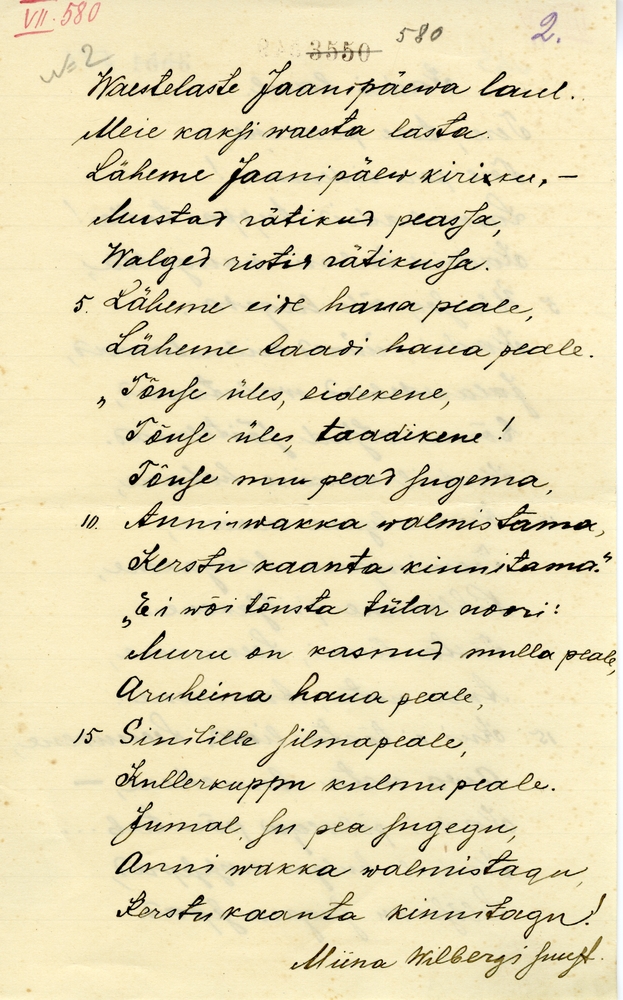 VII. 580
3550 580 2.
No 2
Waestelaste Jaanipäewa laul.
Meie kaksi waesta lasta.
Läheme Jaanipäew kirikku, —
Mustad rätikud peassa,
Walged ristid rätikussa.
5. Läheme eide haua peale,
Läheme taadi haua peale.
„Tõuse üles, eidekene,
Tõuse üles, taadikene!
Tõuse mu pead sugema,
10. Anni-wakka walmistama,
Kerstu kaanta kinnitama.“
„Ei wõi tõusta tütar noori:
Muru on kasnud mulla peale,
Aruheina haua peale,
15 Sinilille silmapeale,
Kullerkuppu kulmupeale.
Jumal su pea sugegu,
Anni wakka walmistagu,
Kerstu kaanta kinnitagu!
Miina Wilbergi suust.